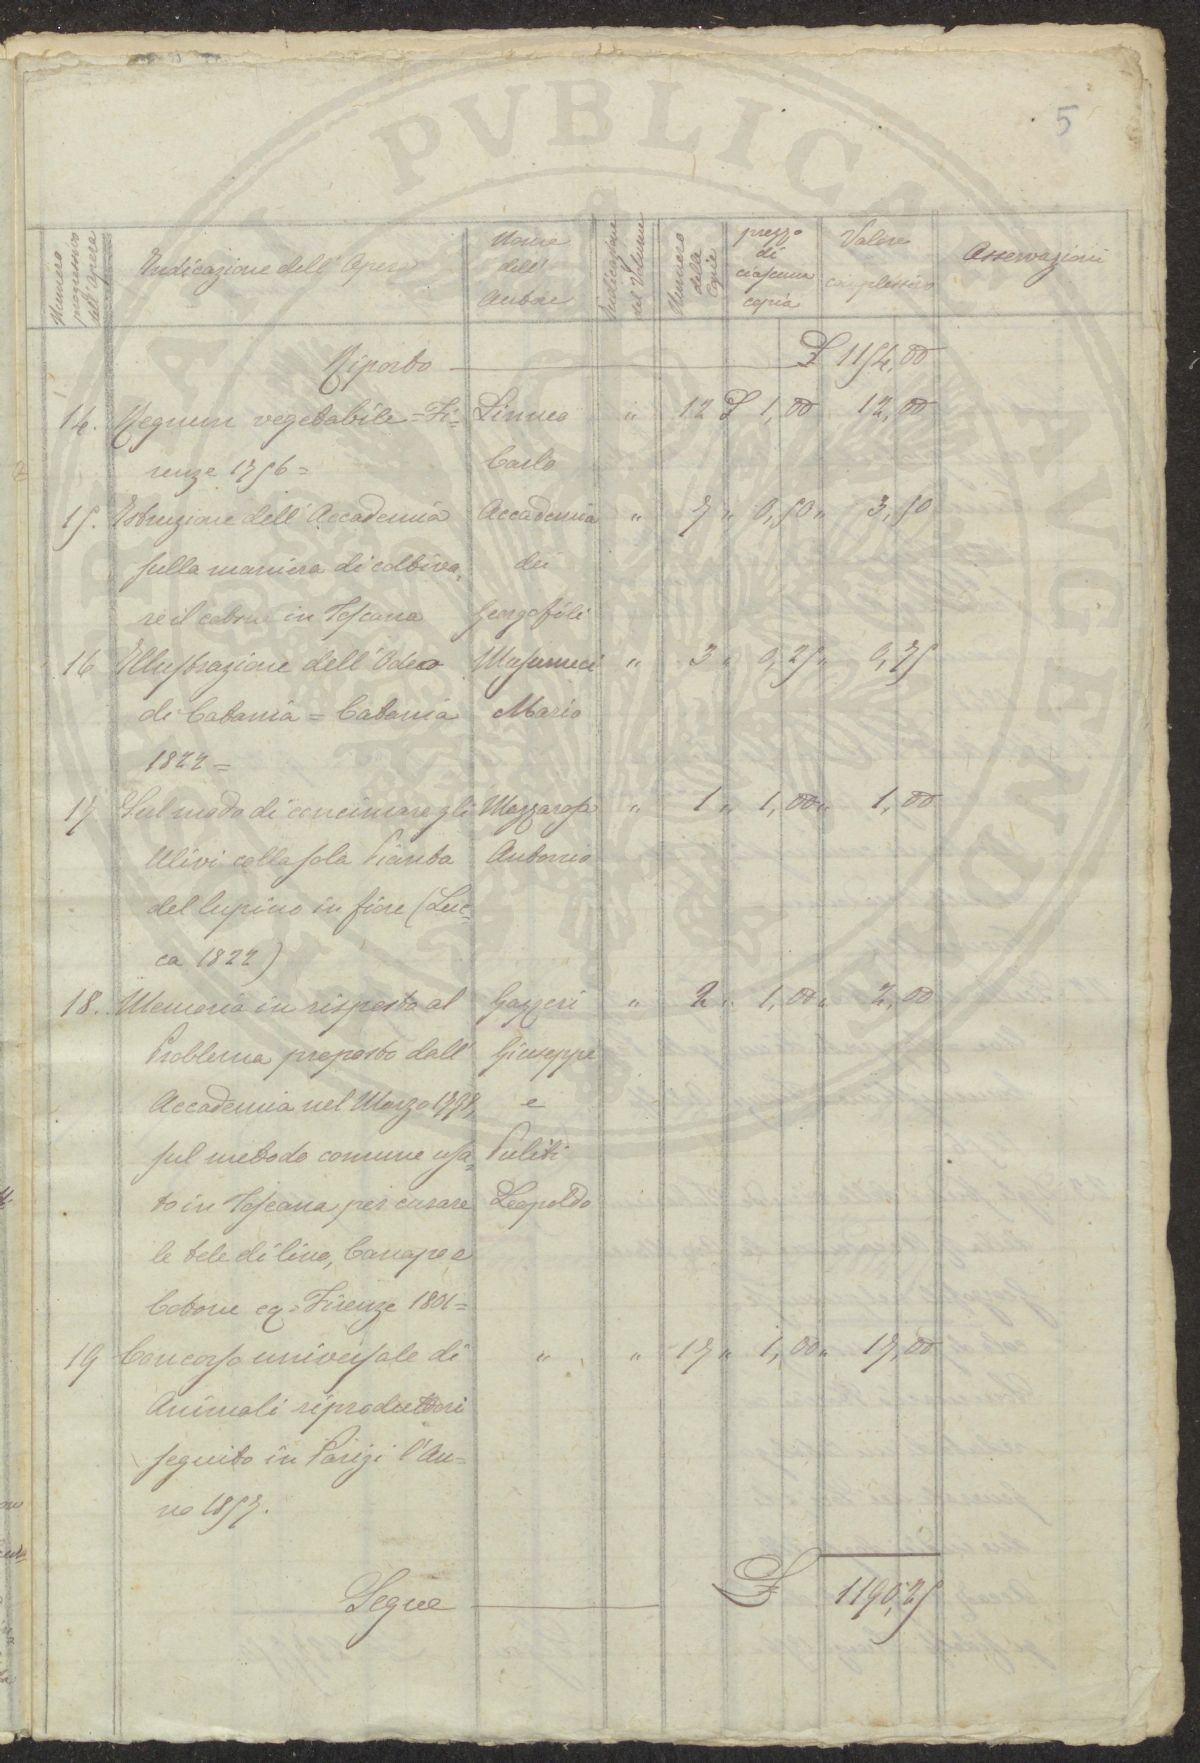 5
Numero progressivo dell'opera | Indicazione dell'Opera | Nome dell' Autore | Indicazione del Volume | Numero delle Copie | prezzo di ciascuna copia | Valore complessivo | Osservazioni
Riporto £ 1154,00
14. Regnum vegetabile = Fi= Linneo " 12 £ 1,00 12,00
renze 1756 = Carlo
15. Istruzione dell'Accademia Accademia " 7 " 0,50 " 3,50
sulla maniera di coltiva, dei
re il in Toscana Georgofili
16 Illustrazione dell'Odeo Musumeci " 3 " 0,25 " 0,75
di Catania = Catania Mario
1822 =
17 Sul modo di concimare gli Mazzarosa " 1 " 1,00 " 1,00
Ulivi colla sola Pianta Antonio
del lupino in fiore (Luc=
ca 1822)
18. Memoria in risposta al Gazzeri " 2 " 1,00 " 2,00
Problema proposto dall' Giuseppe
Accademia nel Marzo 1798, e
sul metodo comune usa, Puliti
to in Toscana per curare Leopoldo
le tele di lino, Canapa e
Cotone = Firenze 1801 =
19 Concorso universale di " " 17 " 1,00 " 17,00
Animali riproduttori
seguito in Parigi l'An=
no 1857.
Segue £ 1190,25
PVBLICA AVGENDAE